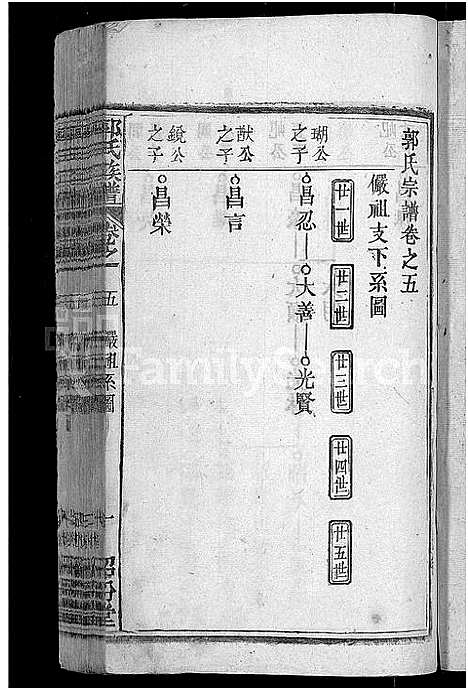 郭氏宗譜卷之五
儼祖支下系圖
廿一世 廿二世 廿三世 廿四世 廿五世
瑚公之子 昌忍 大善 光賢
猷公之子 昌言
鏡公之子 昌榮
郭氏族譜 卷之 五 儼祖系圖 一
FamilySearch